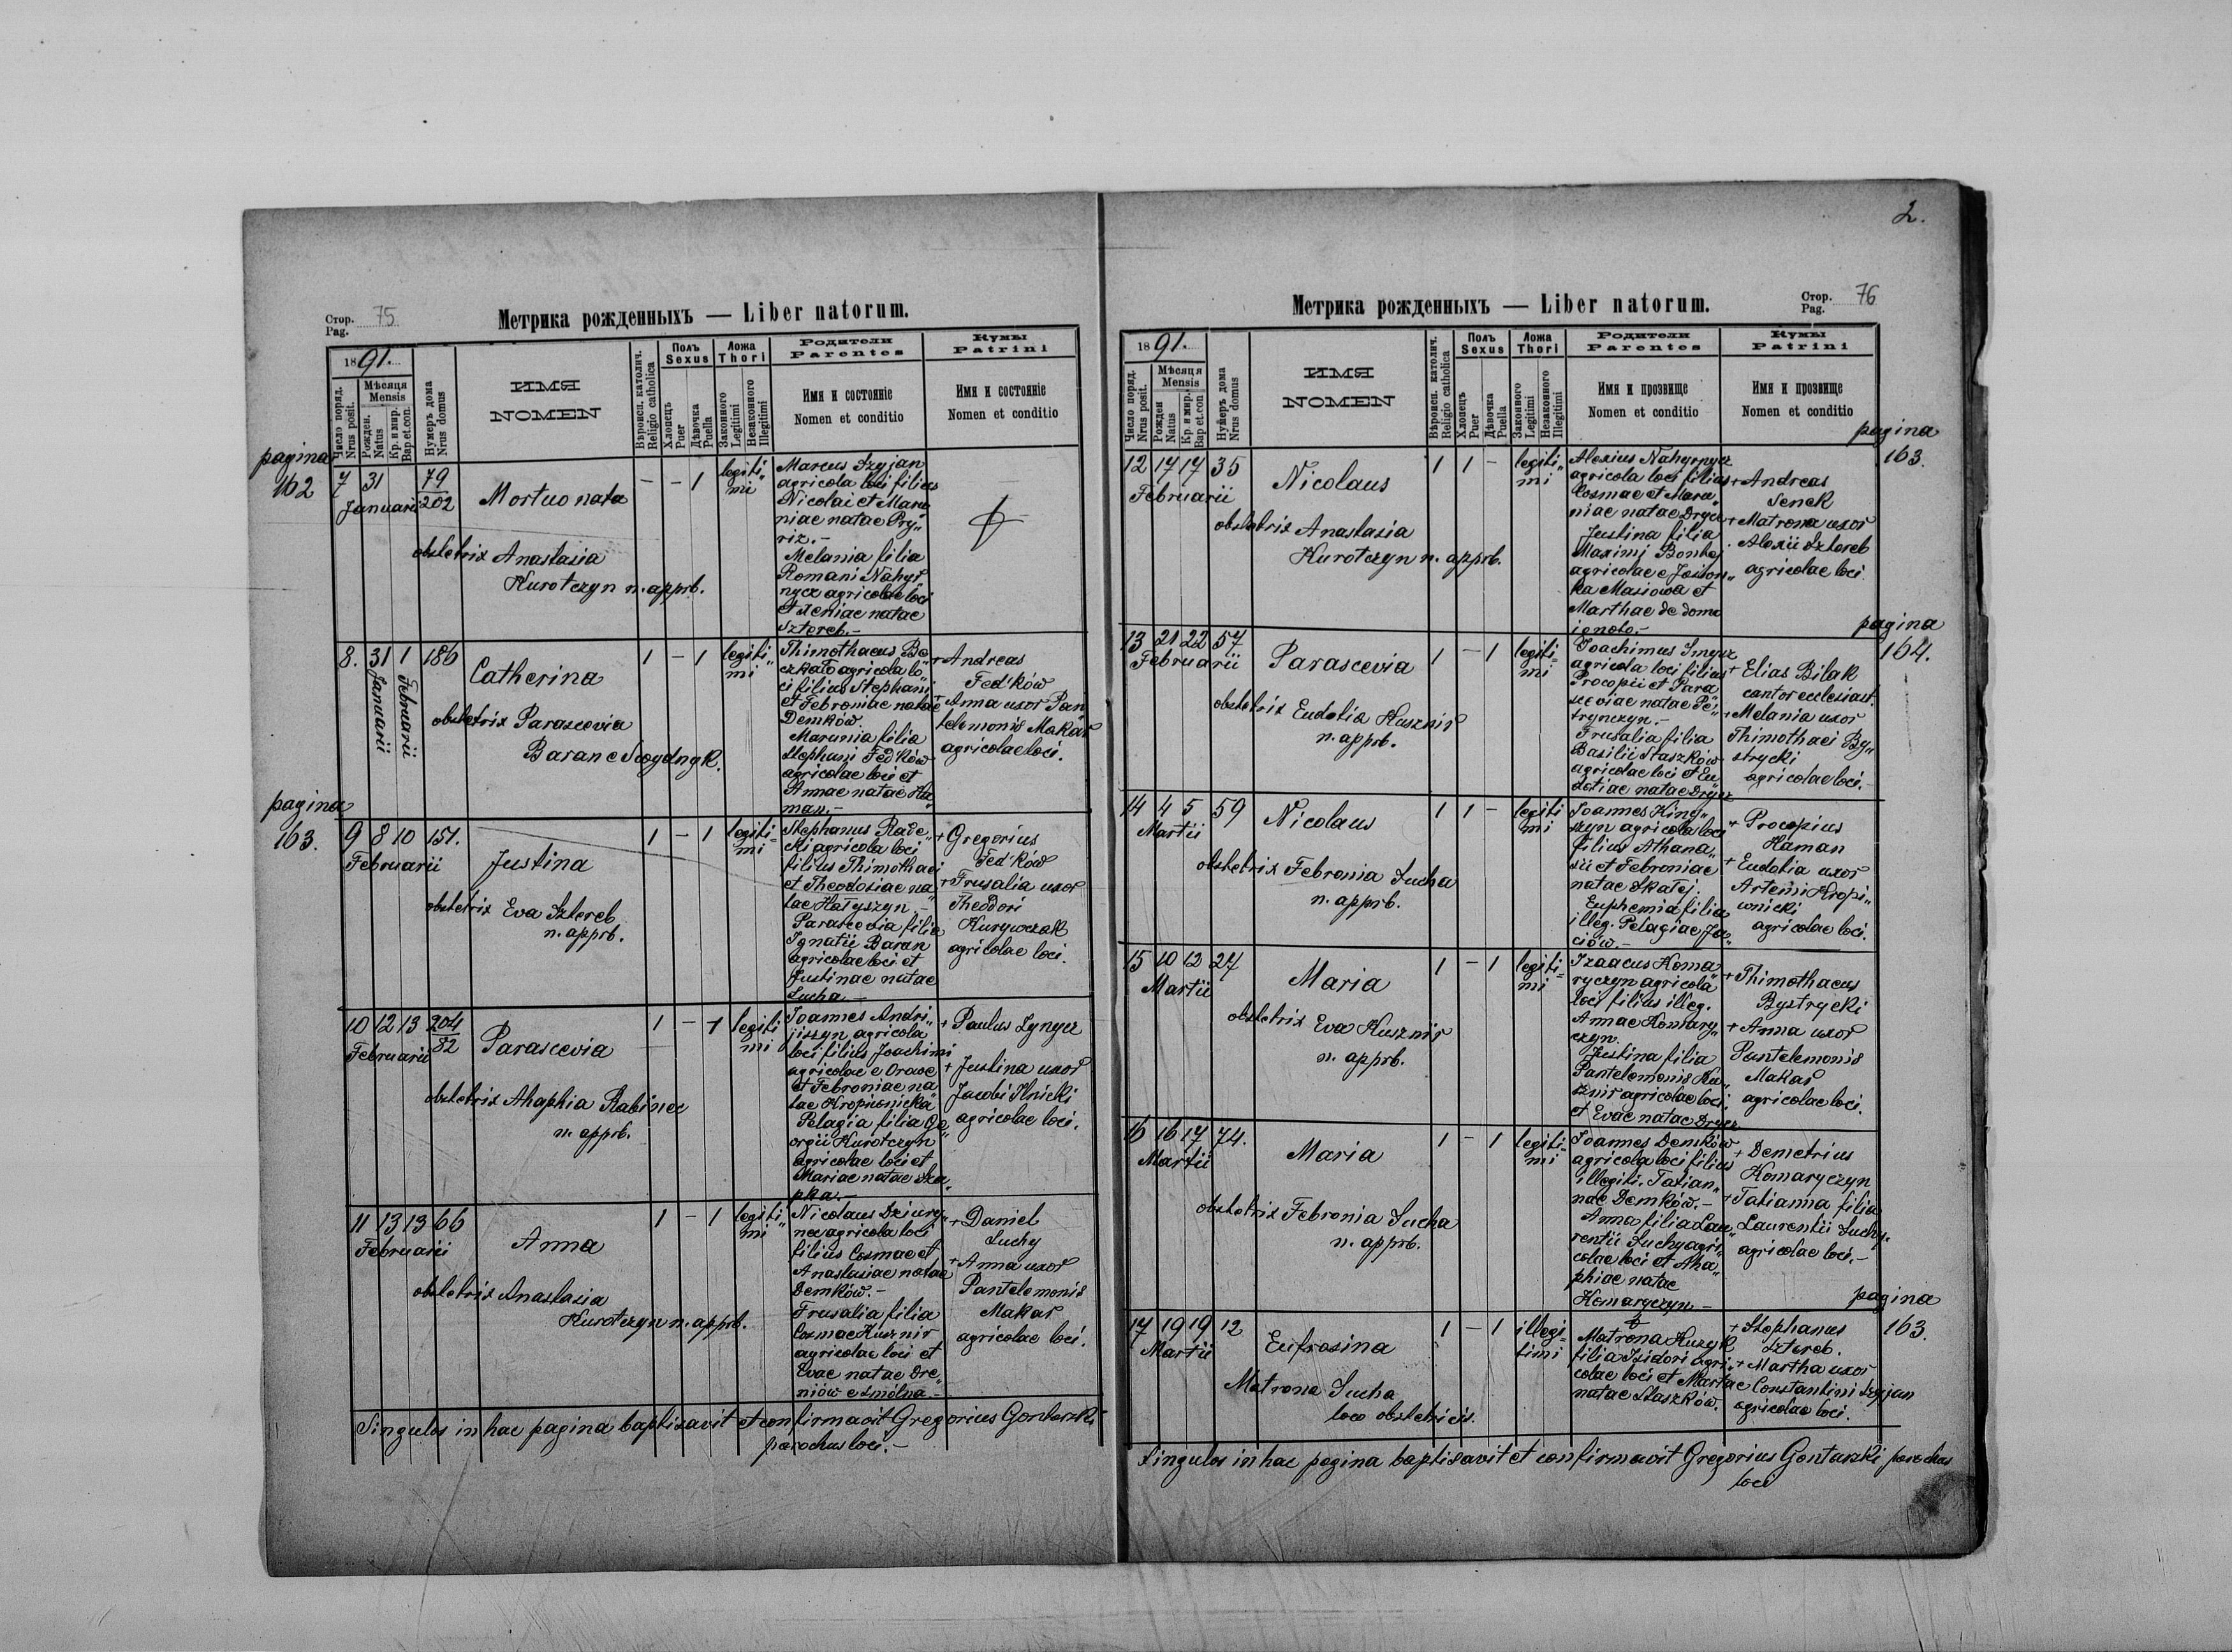 2.
Стор. 75
Pag.
Метрика рожденныхъ — Liber natorum.
1891.
Число поряд.
Nrus posit.
Мѣсяця
Mensis
Рожден.
Natus
Кр. и мир.
Bap et.con.
Нумеръ дома
Nrus domus
ИМЯ
NOMEN
Вѣроисп. католич.
Religio catholica
Полъ
Sexus
Хлопецъ
Puer
Дѣвочка
Puella
Ложа
Thori
Законного
Legitimi
Незаконного
Illegitimi
Родители
Parentes
Имя и состояніе
Nomen et conditio
Кумы
Patrini
Имя и состояніе
Nomen et conditio
pagina
162
7 31
Januarii
79
202
Mortuo nata
obstetrix Anastasia
Kurotczyn n. apprb.
- - 1
legiti„
mi
Marcus Szyjan
agricola loci filius
Nicolai et Maru
niae natae Pry„
riz.-
Melania filia
Romani Nahyr
nycz agricolae loci
et Xeniae natae
Sztereb.-
8. 31 1 186
Januarii
Februarii
Catherina
obstetrix Parascevia
Baran e Swydnyk.
1 - 1
legiti„
mi
Thimothaeus Bo
czkało agricola lo„
ci filius Stephani
et Febroniae natae
Demków.
Marunia filia
Stephani Fed'ków
agricolae loci et
Annae natae Ha„
man.-
+ Andreas
Fed'ków
+ Anna uxor Pan„
telemonis Makar
agricolae loci.
pagina
163.
9 8 10 151.
Februarii
Justina
obstetrix Eva Sztereb
n. apprb.
1 - 1
legiti=
mi
Stephanus Rade„
cki agricola loci
filius Thimothaei
et Theodosiae na„
tae Hałyszyn.-
Parascevia filia
Ignatii Baran
agricolae loci et
Justinae natae
Sucha.-
+ Gregorius
Fed'ków
+ Frusalia uxor
Theodori
Kurywczak
agricolae loci.
10 12 13 204
82
Februarii
Parascevia
obstetrix Ahaphia Rabinec
n. apprb.
1 - 1
legiti
mi
Joannes Andri„
jiszyn agricola
loci filius Joachimi
agricolae e Orawe
et Febroniae na
tae Kropiwnicka
Pelagia filia Ge„
orgii Kurotczyn
agricolae loci et
Mariae natae Ska„
pka.-
+ Paulus Zynycz
+ Justina uxor
Jacobi Ilnicki
agricolae loci.
11 13 13 66
Februarii
Anna
obstetrix Anastasia
Kurotczyn n. apprb.
1 - 1
legiti„
mi
Nicolaus Dziury„
nec agricola loci
filius Cosmae et
Anastasiae natae
Demków.-
Frusalia filia
Cosmae Kusznir
agricolae loci et
Evae natae Dre„
niów e Smólna.-
+ Daniel
Suchy
+ Anna uxor
Pantelemonis
Makar
agricolae loci.
Singulos in hac pagina baptisavit et confirmavit Gregorius Gontarski
parochus loci.-
Метрика рожденныхъ — Liber natorum.
Стор. 76
Pag.
1891.
Число поряд.
Nrus posit.
Мѣсяця
Mensis
Рожден
Natus
Кр. и мир.
Bap et.con
Нумеръ дома
Nrus domus
ИМЯ
NOMEN
Вѣроисп. католич.
Religio catholica
Полъ
Sexus
Хлопецъ
Puer
Дѣвочка
Puella
Ложа
Thori
Законного
Legitimi
Незаконного
Illegitimi
Родители
Parentes
Имя и прозвище
Nomen et conditio
Кумы
Patrini
Имя и прозвище
Nomen et conditio
pagina
163.
12 17 17 35
Februarii
Nicolaus
obstetrix Anastasia
Kurotczyn n. apprb.
1 1 -
legiti„
mi
Alexius Nahyrnycz
agricola loci filius
Cosmae et Maru„
niae natae Drycz
Justina filia
Maximi Bonho
agricolae e Jasion„
ka Masiowa et
Marthae de domo
ignoto.-
+ Andreas
Senek
+ Matrona uxor
Alexii Sztereb
agricolae loci.
pagina
164.
13 21 22 57
Februarii
Parascevia
obstetrix Eudotia Kusznir
n. apprb.
1 - 1
legiti=
mi
Joachimus Smycz
agricola loci filius
Procopii et Para
sceviae natae Pe„
trynczyn.-
Frusalia filia
Basilii Staszków
agricolae loci et Eu
dotiae natae Drycz
+ Elias Bilak
cantor ecclesiast.
+ Melania uxor
Thimothaei By„
strycki
agricolae loci.-
14 4 5 59
Martii
Nicolaus
obstetrix Febronia Sucha
n. apprb.
1 1 -
legiti
mi
Joannes Hiny„
szyn agricola loci
filius Athana„
sii et Febroniae
natae Skałej.
Euphemia filia
illeg. Pelagiae Ja„
ciów.-
+ Procopius
Haman
+ Eudotia uxor
Artemii Kropi„
wnicki
agricolae loci.
15 10 12 27
Martii
Maria
obstetrix Eva Kusznir
n. apprb.
1 - 1
legiti=
mi
Izaacus Koma„
ryczyn agricola
loci filius illeg.
Annae Komary„
czyn.
Justina filia
Pantelemonis Ku„
sznir agricolae loci
et Evae natae Drycz
+ Thimothaeus
Bystrycki
+ Anna uxor
Pantelemonis
Makar
agricolae loci.
16 16 17 74.
Martii
Maria
obstetrix Febronia Sucha
n. apprb.
1 - 1
legiti=
mi
Joannes Demków
agricola loci filius
illegiti. Tatian„
nae Demków.-
Anna filia Lau„
rentii Suchy agri„
colae loci et Aha„
phiae natae
Komaryczyn.-
+ Demetrius
Komaryczyn
+ Tatianna filia
Laurentii Suchy.
agricolae loci.-
pagina
163.
17 19 19 12
Martii
Eufrosina
Matrona Sucha
loco obstetricis.
1 - 1
illegi=
timi
Matrona Huzyk
filia Isidori agri„
colae loci et Martae
natae Staszków.
+ Stephanus
Sztereb.
+ Martha uxor
Constantini Szyjan
agricolae loci.
Singulos in hac pagina baptisavit et confirmavit Gregorius Gontarski parochus
loci